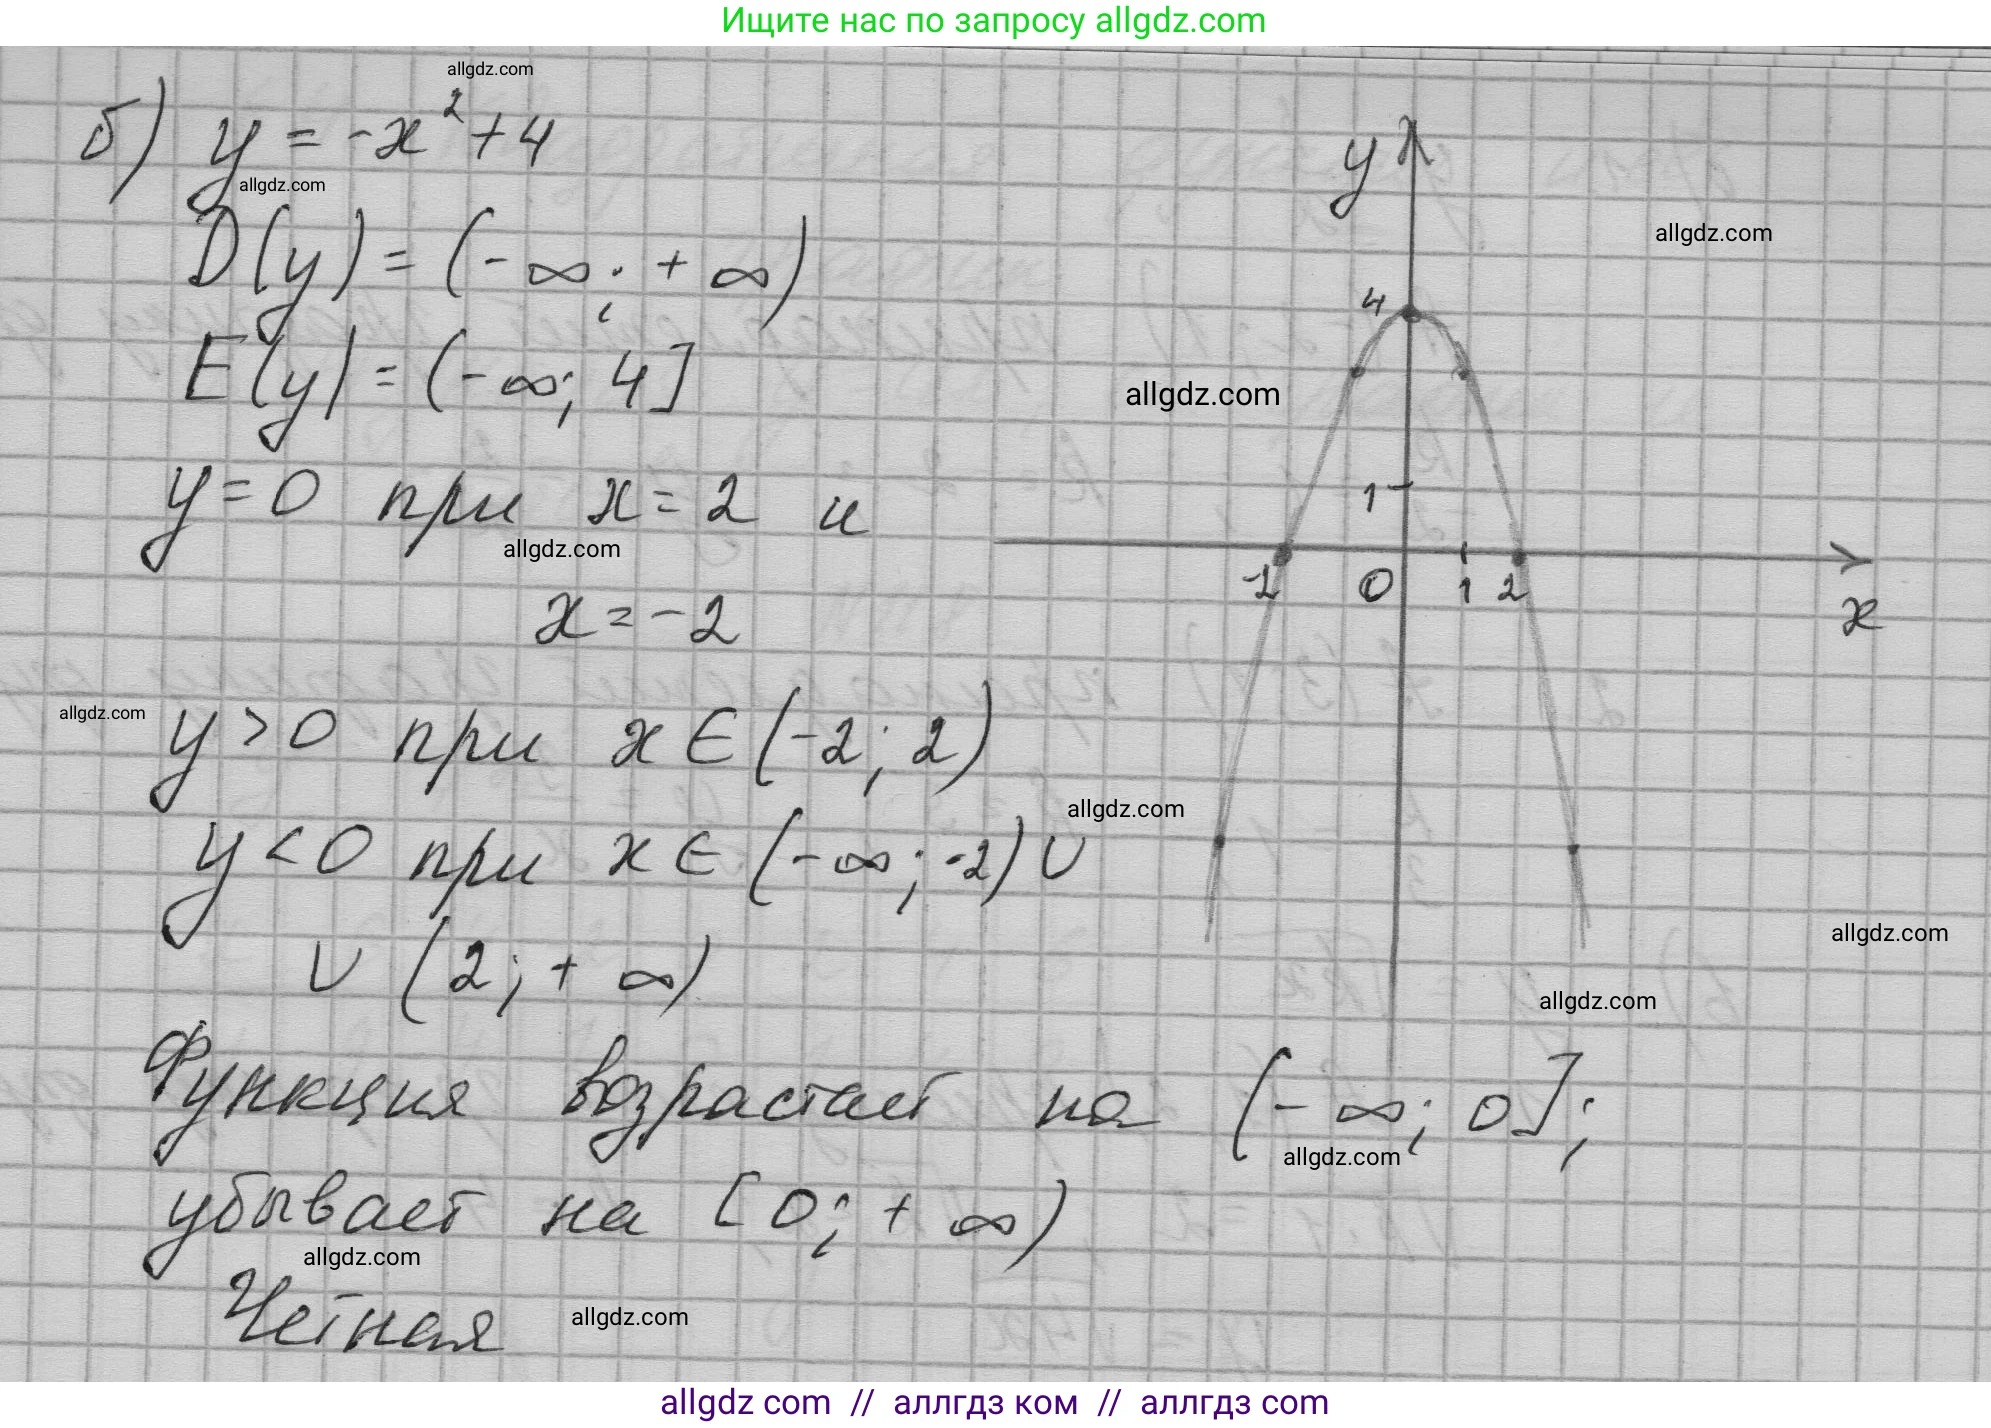 Ищите нас по запросу allgdz.com
allgdz.com
б) y = -x² + 4
allgdz.com
D(y) = (-∞; +∞)
E(y) = (-∞; 4]
y = 0 при x = 2 и
allgdz.com
x = -2
allgdz.com
y > 0 при x ∈ (-2; 2)
y < 0 при x ∈ (-∞; -2) ∪
∪ (2; +∞)
y
allgdz.com
4
allgdz.com
1
-2 0 1 2
x
allgdz.com
allgdz.com
allgdz.com
Функция возрастает на (-∞; 0];
allgdz.com
убывает на [0; +∞)
allgdz.com
Четная
allgdz.com
allgdz com // аллгдз ком // аллгдз com